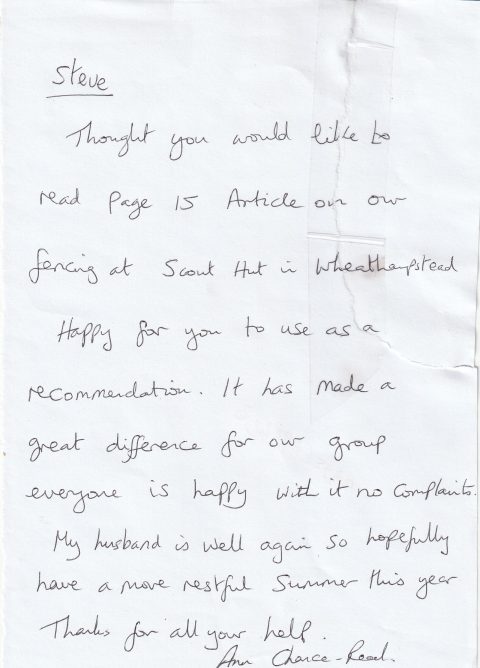 Steve
Thought you would like to
read Page 15 Article on our
fencing at Scout Hut in Wheathampstead
Happy for you to use as a
recommendation. It has made a
great difference for our group
everyone is happy with it no complaints.
My husband is well again so hopefully
have a more restful Summer this year
Thanks for all your help.
Ann